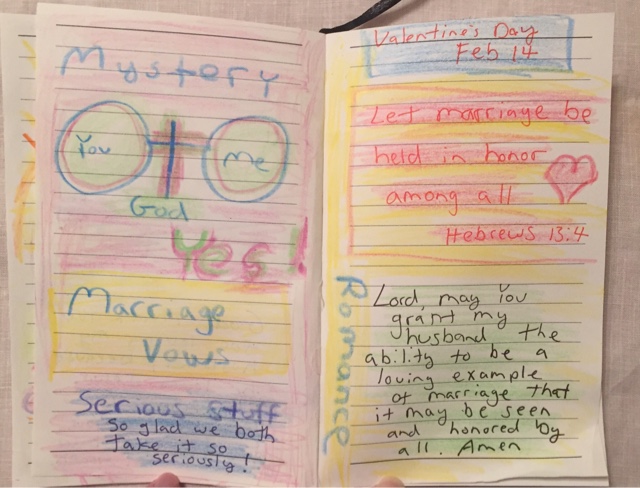 Mystery
You
Me
God
Yes!
Marriage
Vows
Serious stuff
So glad we both
take it so
seriously!
Valentine's Day
Feb 14
Let marriage be
held in honor
among all
Hebrews 13:4
Romance
Lord, may You
grant my
husband the
ability to be a
loving example
of marriage that
it may be seen
and honored by
all. Amen